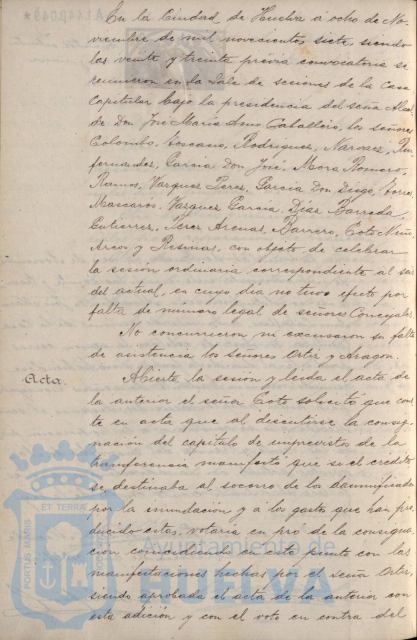 En la Ciudad de Huelva á ocho de No-
viembre de mil novecientos siete, siendo
las veinte y treinta previa convocatoria se
reunieron en la Sala de sesiones de la casa
Capitular bajo la presidencia del señor Alcal-
de Don José María Amo Caballero, los señores
Colombo, Toscano, Rodriguez, Narvaez,
Fernandez, Garcia Don José, Mora Romero,
Ramos, Vazquez Perez, Garcia Don Diego, Torres
Mascarós, Vazquez Garcia, Díaz Barreda,
Gutierrez, Perez Arenas, Barrero, Coto
y Resinas, con objeto de celebrar
la sesión ordinaria correspondiente al seis
del actual, en cuyo dia no tuvo efecto por
falta de número legal de señores Concejales.
No concurrieron ni excusaron su falta
de asistencia los señores Ortiz y Aragon.
Acta. Abierta la sesión y leida el acta de
la anterior el señor Coto solicitó que cons-
te en acta que al discutirse la consig-
nación del capitulo de imprevistos de la
transferencia manifestó que si el crédito
se destinaba al socorro de los damnificados
por la inundación y á los gastos que han pro-
ducido estas, votaria en pró de la consigna-
cion coincidiendo en este punto con las
manifestaciones hechas por el señor Ortiz,
siendo aprobada el acta de la anterior con
esta adición y con el voto en contra del
PORTUS MARIS
ET TERRÆ
Ayuntamiento de
HUELVA